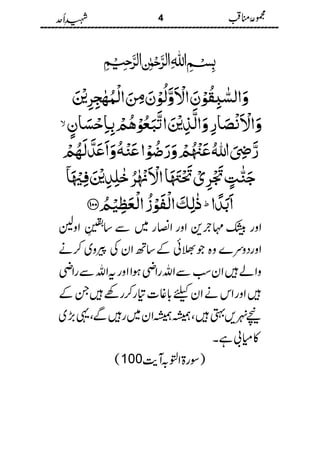 مجموعہ مناقب 4 شہید اُحد
بِسْمِ اللهِ الرَّحْمٰنِ الرَّحِيْمِ
وَالسّٰبِقُوْنَ الْاَوَّلُوْنَ مِنَ الْمُهٰجِرِيْنَ
وَالْاَنْصَارِ وَالَّذِيْنَ اتَّبَعُوْهُمْ بِاِحْسَانٍ ۙ
رَّضِيَ اللهُ عَنْهُمْ وَرَضُوْا عَنْهُ وَاَعَدَّ لَهُمْ
جَنّٰتٍ تَجْرِيْ تَحْتَهَا الْاَنْهٰرُ خٰلِدِيْنَ فِيْهَآ
اَبَدًا ؕ ذٰلِكَ الْفَوْزُ الْعَظِيْمُ ۝۱۰۰
اور بیشک مہاجرین اور انصار میں سے سابقین اولین
اور دوسرے وہ جو بھلائی کے ساتھ ان کی پیروی کرنے
والے ہیں ان سب سے اللہ راضی ہوا اور یہ اللہ سے راضی
ہیں اور اس نے ان کیلئے باغات تیار کر رکھے ہیں جن کے
نیچے نہریں بہتی ہیں، ہمیشہ ہمیشہ ان میں رہیں گے، یہی بڑی
کامیابی ہے۔
(سورۃ التوبہ آیت 100)